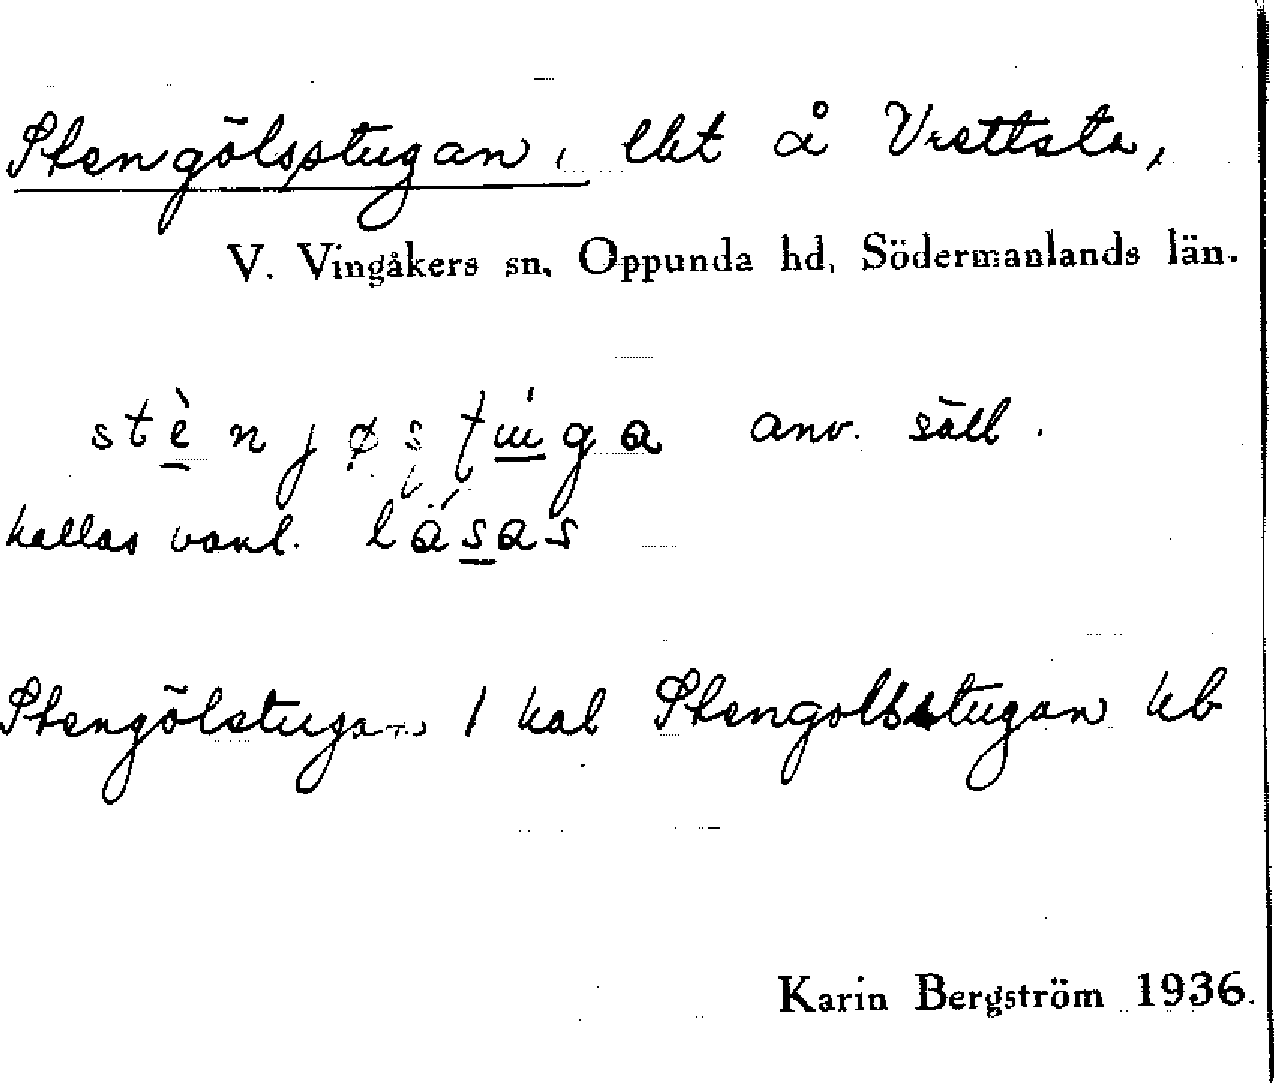 Stengölsstugan, lht å Vrettsta,
V. Vingåkers sn, Oppunda hd, Södermanlands län.
stènjøstúga anv. säll.
kallas vanl. lásas
Stengölstugan 1 kal Stengolsstugan kb
Karin Bergström 1936.